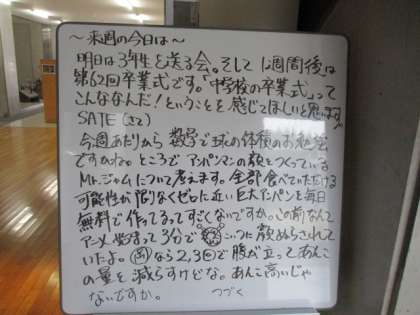 ～来週の今日は～
明日は3年生を送る会。そして1週間後は
第62回卒業式です。「中学校の卒業式」って
こんななんだ！ということを感じてほしいと思います。
SATE（さて）
今週あたりから数学で球の体積のお勉強
ですかね。ところでアンパンマンの顔をつくっている
Mr.ジャムについて考えます。全部食べていただける
可能性が限りなくゼロに近い巨大アンパンを毎日
無料で作ってるってすごくないですか。この前なんて
アニメ始まって3分で こいつに顔ぬらされて
いたよ。岡なら2,3回で腹が立ってあんこ
の量を減らすけどな。あんこ高いじゃ
ないですか。 つづく